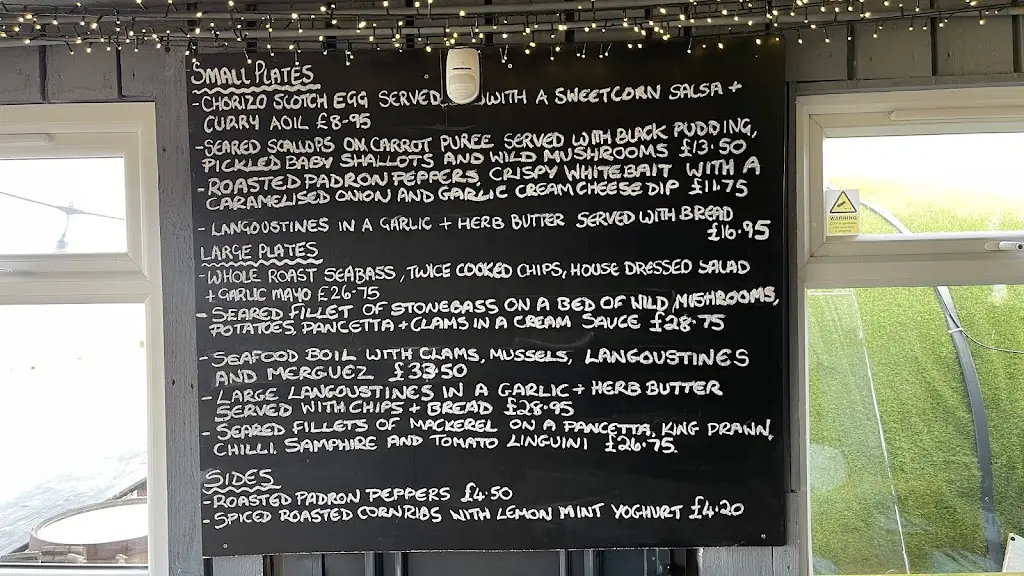 SMALL PLATES
- CHORIZO SCOTCH EGG SERVED WITH A SWEETCORN SALSA +
CURRY AOIL £8-95
- SEARED SCALLOPS ON CARROT PUREE SERVED WITH BLACK PUDDING,
PICKLED BABY SHALLOTS AND WILD MUSHROOMS £13.50
- ROASTED PADRON PEPPERS CRISPY WHITEBAIT WITH A
CARAMELISED ONION AND GARLIC CREAM CHEESE DIP £11.75
- LANGOUSTINES IN A GARLIC + HERB BUTTER SERVED WITH BREAD
£16.95
LARGE PLATES
- WHOLE ROAST SEABASS, TWICE COOKED CHIPS, HOUSE DRESSED SALAD
+ GARLIC MAYO £26-75
- SEARED FILLET OF STONEBASS ON A BED OF WILD MUSHROOMS,
POTATOES, PANCETTA + CLAMS IN A CREAM SAUCE £28.75
- SEAFOOD BOIL WITH CLAMS, MUSSELS, LANGOUSTINES
AND MERGUEZ £33.50
- LARGE LANGOUSTINES IN A GARLIC + HERB BUTTER
SERVED WITH CHIPS + BREAD £28.95
- SEARED FILLETS OF MACKEREL ON A PANCETTA, KING PRAWN,
CHILLI, SAMPHIRE AND TOMATO LINGUINI £26.75
SIDES
- ROASTED PADRON PEPPERS £4.50
- SPICED ROASTED CORN RIBS WITH LEMON MINT YOGHURT £4.20
WARNING